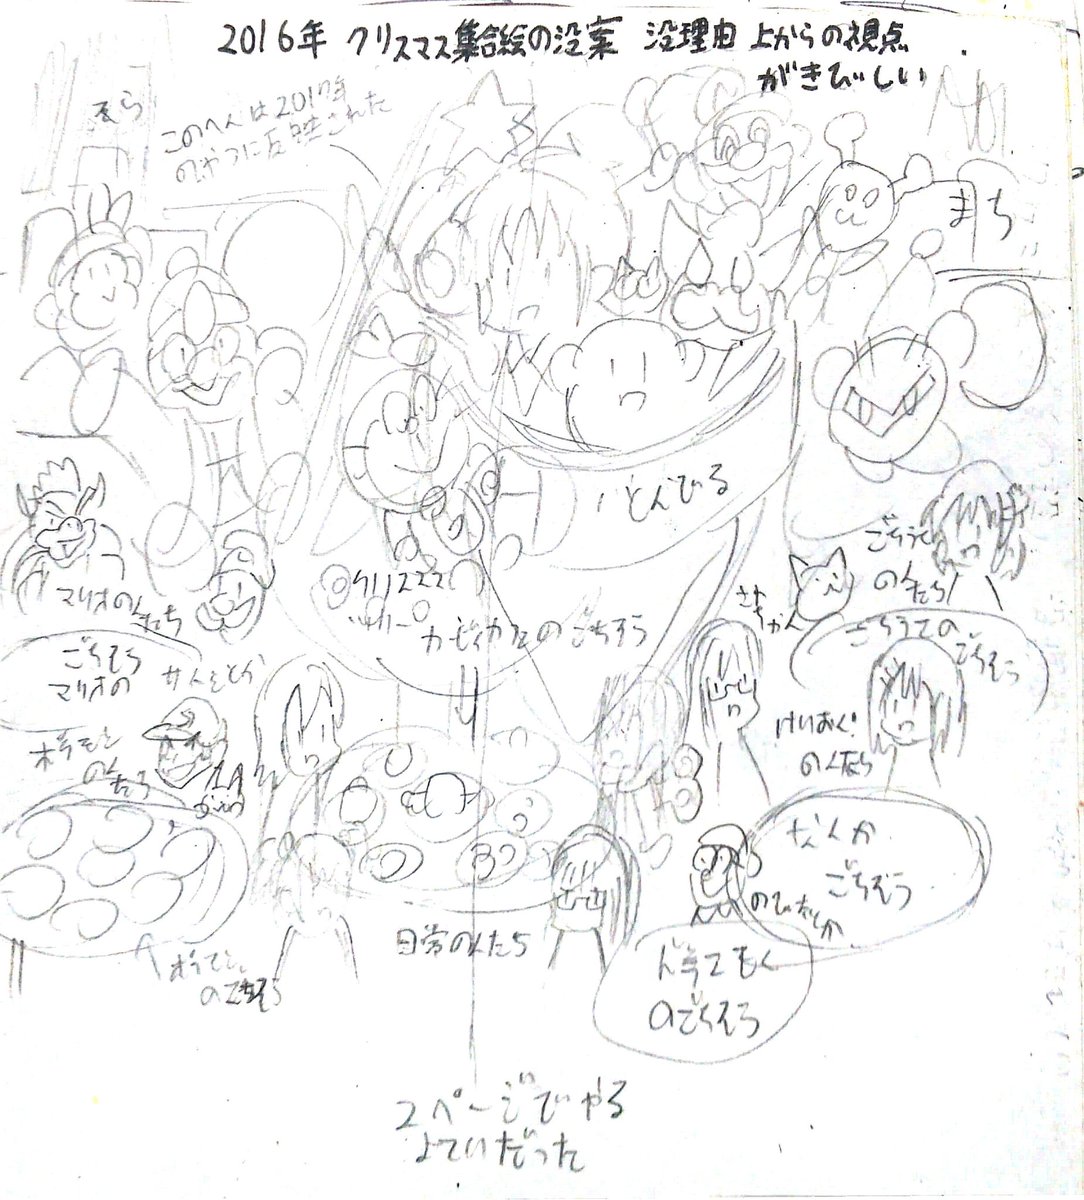 2016年 クリスマス集合絵の没案 没理由 上からの視点
がきびしい
このへんは2017年
のやつに反映された
まち
とんでる
マリオの人たち
ごちそう
マリオの
クリスマス
カービィたちの ごちそう
ごちうさ
の人たち
ごちうさの
ごちそう
ポケモン
の人たち
けいおん!
の人たち
なんか
ごちそう
のびたとか
日常の人たち
のごちそう
のごちそう
2ページでやる
よていだった